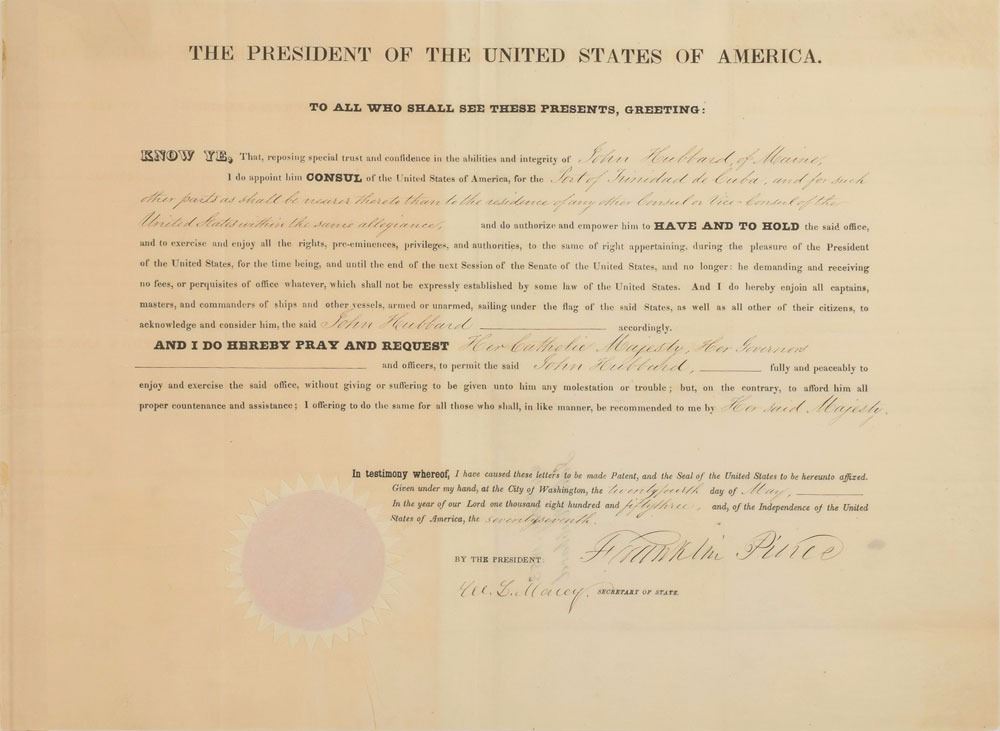 THE PRESIDENT OF THE UNITED STATES OF AMERICA.
TO ALL WHO SHALL SEE THESE PRESENTS, GREETING:
KNOW YE, That, reposing special trust and confidence in the abilities and integrity of John Hubbard, of Maine,
I do appoint him CONSUL of the United States of America, for the Port of Trinidad de Cuba, and for such
other parts as shall be nearer thereto than to the residence of any other Consul or Vice-Consul of the
United States within the same allegiance, and do authorize and empower him to HAVE AND TO HOLD the said office,
and to exercise and enjoy all the rights, pre-eminences, privileges, and authorities, to the same of right appertaining, during the pleasure of the President
of the United States, for the time being, and until the end of the next Session of the Senate of the United States, and no longer: he demanding and receiving
no fees, or perquisites of office whatever, which shall not be expressly established by some law of the United States. And I do hereby enjoin all captains,
masters, and commanders of ships and other vessels, armed or unarmed, sailing under the flag of the said States, as well as all other of their citizens, to
acknowledge and consider him, the said John Hubbard accordingly.
AND I DO HEREBY PRAY AND REQUEST Her Catholic Majesty, Her Governors
and officers, to permit the said John Hubbard, fully and peaceably to
enjoy and exercise the said office, without giving or suffering to be given unto him any molestation or trouble; but, on the contrary, to afford him all
proper countenance and assistance; I offering to do the same for all those who shall, in like manner, be recommended to me by Her said Majesty.
In testimony whereof, I have caused these letters to be made Patent, and the Seal of the United States to be hereunto affixed.
Given under my hand, at the City of Washington, the twenty fourth day of May,
In the year of our Lord one thousand eight hundred and fifty three, and, of the Independence of the United
States of America, the seventy seventh.
BY THE PRESIDENT: Franklin Pierce
W. L. Marcy. SECRETARY OF STATE.